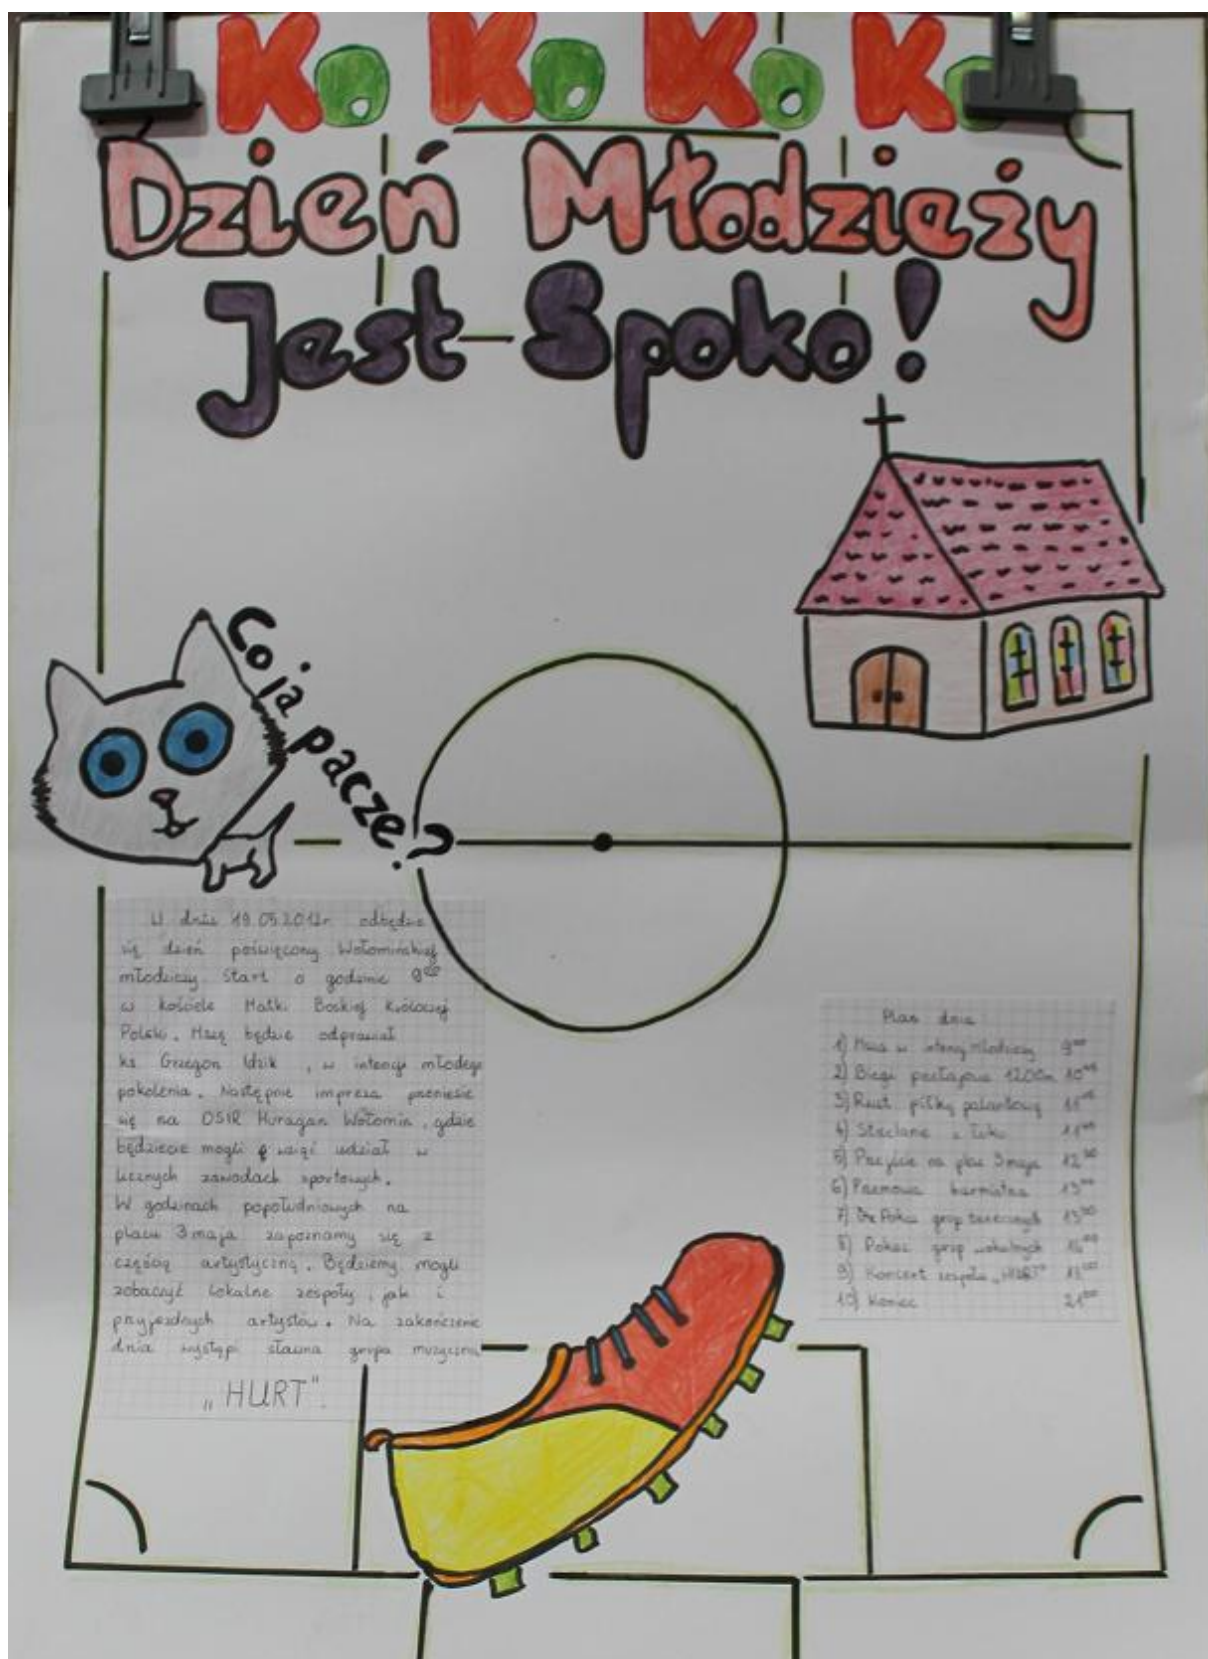 Ko Ko Ko Ko
Dzień Młodzieży
Jest Spoko!
Co ja pacze?
W dniu 19.05.2012r. odbędzie
się dzień poświęcony Wołomińskiej
młodzieży. Start o godzinie 9⁰⁰
w kościele Matki Boskiej Królowej
Polski. Mszę będzie odprawiał
ks. Grzegorz Idzik, w intencji młodego
pokolenia. Następnie impreza przeniesie
się na OSIR Huragan Wołomin, gdzie
będziecie mogli wziąć udział w
licznych zawodach sportowych.
W godzinach popołudniowych na
placu 3 maja zapoznamy się z
częścią artystyczną. Będziemy mogli
zobaczyć lokalne zespoły, jak i
przyjezdnych artystów. Na zakończenie
dnia wystąpi sławna grupa muzyczna
„HURT".
Plan dnia
1) Msza w intencji młodzieży 9⁰⁰
2) Biegi 1200m
3) Rzut piłką palantową
4) Strzelanie z łuku
5) Przejście na plac 3 maja 12⁰⁰
6) Przemowa burmistrza 13⁰⁰
7) Pokaz grup tanecznych
8) Pokaz grup wokalnych
9) Koncert zespołu „HURT"
10) Koniec 21⁰⁰